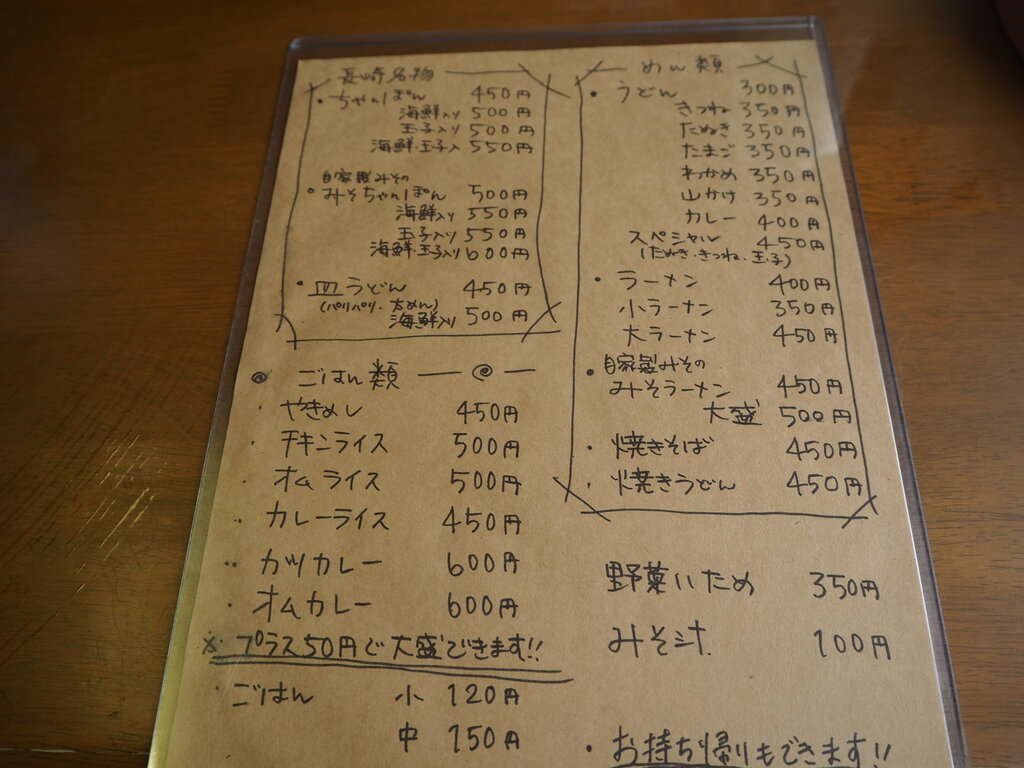 長崎名物
・ちゃんぽん 450円
海鮮入り 500円
玉子入り 500円
海鮮・玉子入 550円
自家製みその
・みそちゃんぽん 500円
海鮮入り 550円
玉子入り 550円
海鮮・玉子入り 600円
・皿うどん 450円
(パリパリ・太めん)
海鮮入り 500円
◎ ごはん類
・やきめし 450円
・チキンライス 500円
・オムライス 500円
・カレーライス 450円
・カツカレー 600円
・オムカレー 600円
※プラス50円で大盛できます!!
ごはん 小 120円
中 150円
めん類
・うどん 300円
きつね 350円
たぬき 350円
たまご 350円
わかめ 350円
山かけ 350円
カレー 400円
スペシャル 450円
(たぬき・きつね・玉子)
・ラーメン 400円
小ラーメン 350円
大ラーメン 450円
・自家製みその
みそラーメン 450円
大盛 500円
・焼きそば 450円
・焼きうどん 450円
野菜いため 350円
みそ汁 100円
・お持ち帰りもできます!!